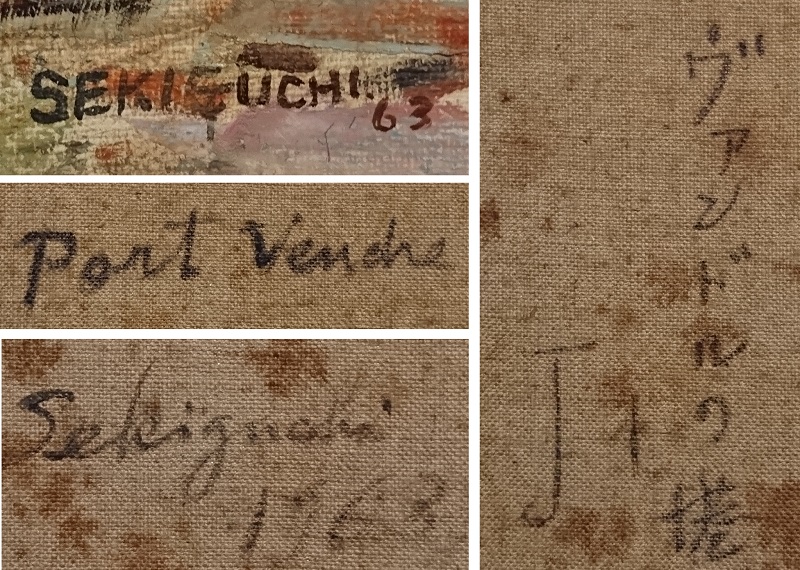 SEKIGUCHI. 63
Port Vendre
Sekiguchi
1963
ヴァンドルの港
J